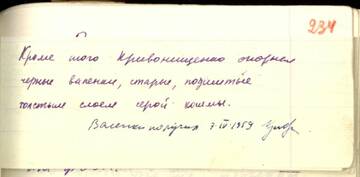 234
Кроме того Кривонищенко опознал
черные валенки, старые, подшитые
толстым слоем серой кошмы.
Валенки получил 7.IV.1959